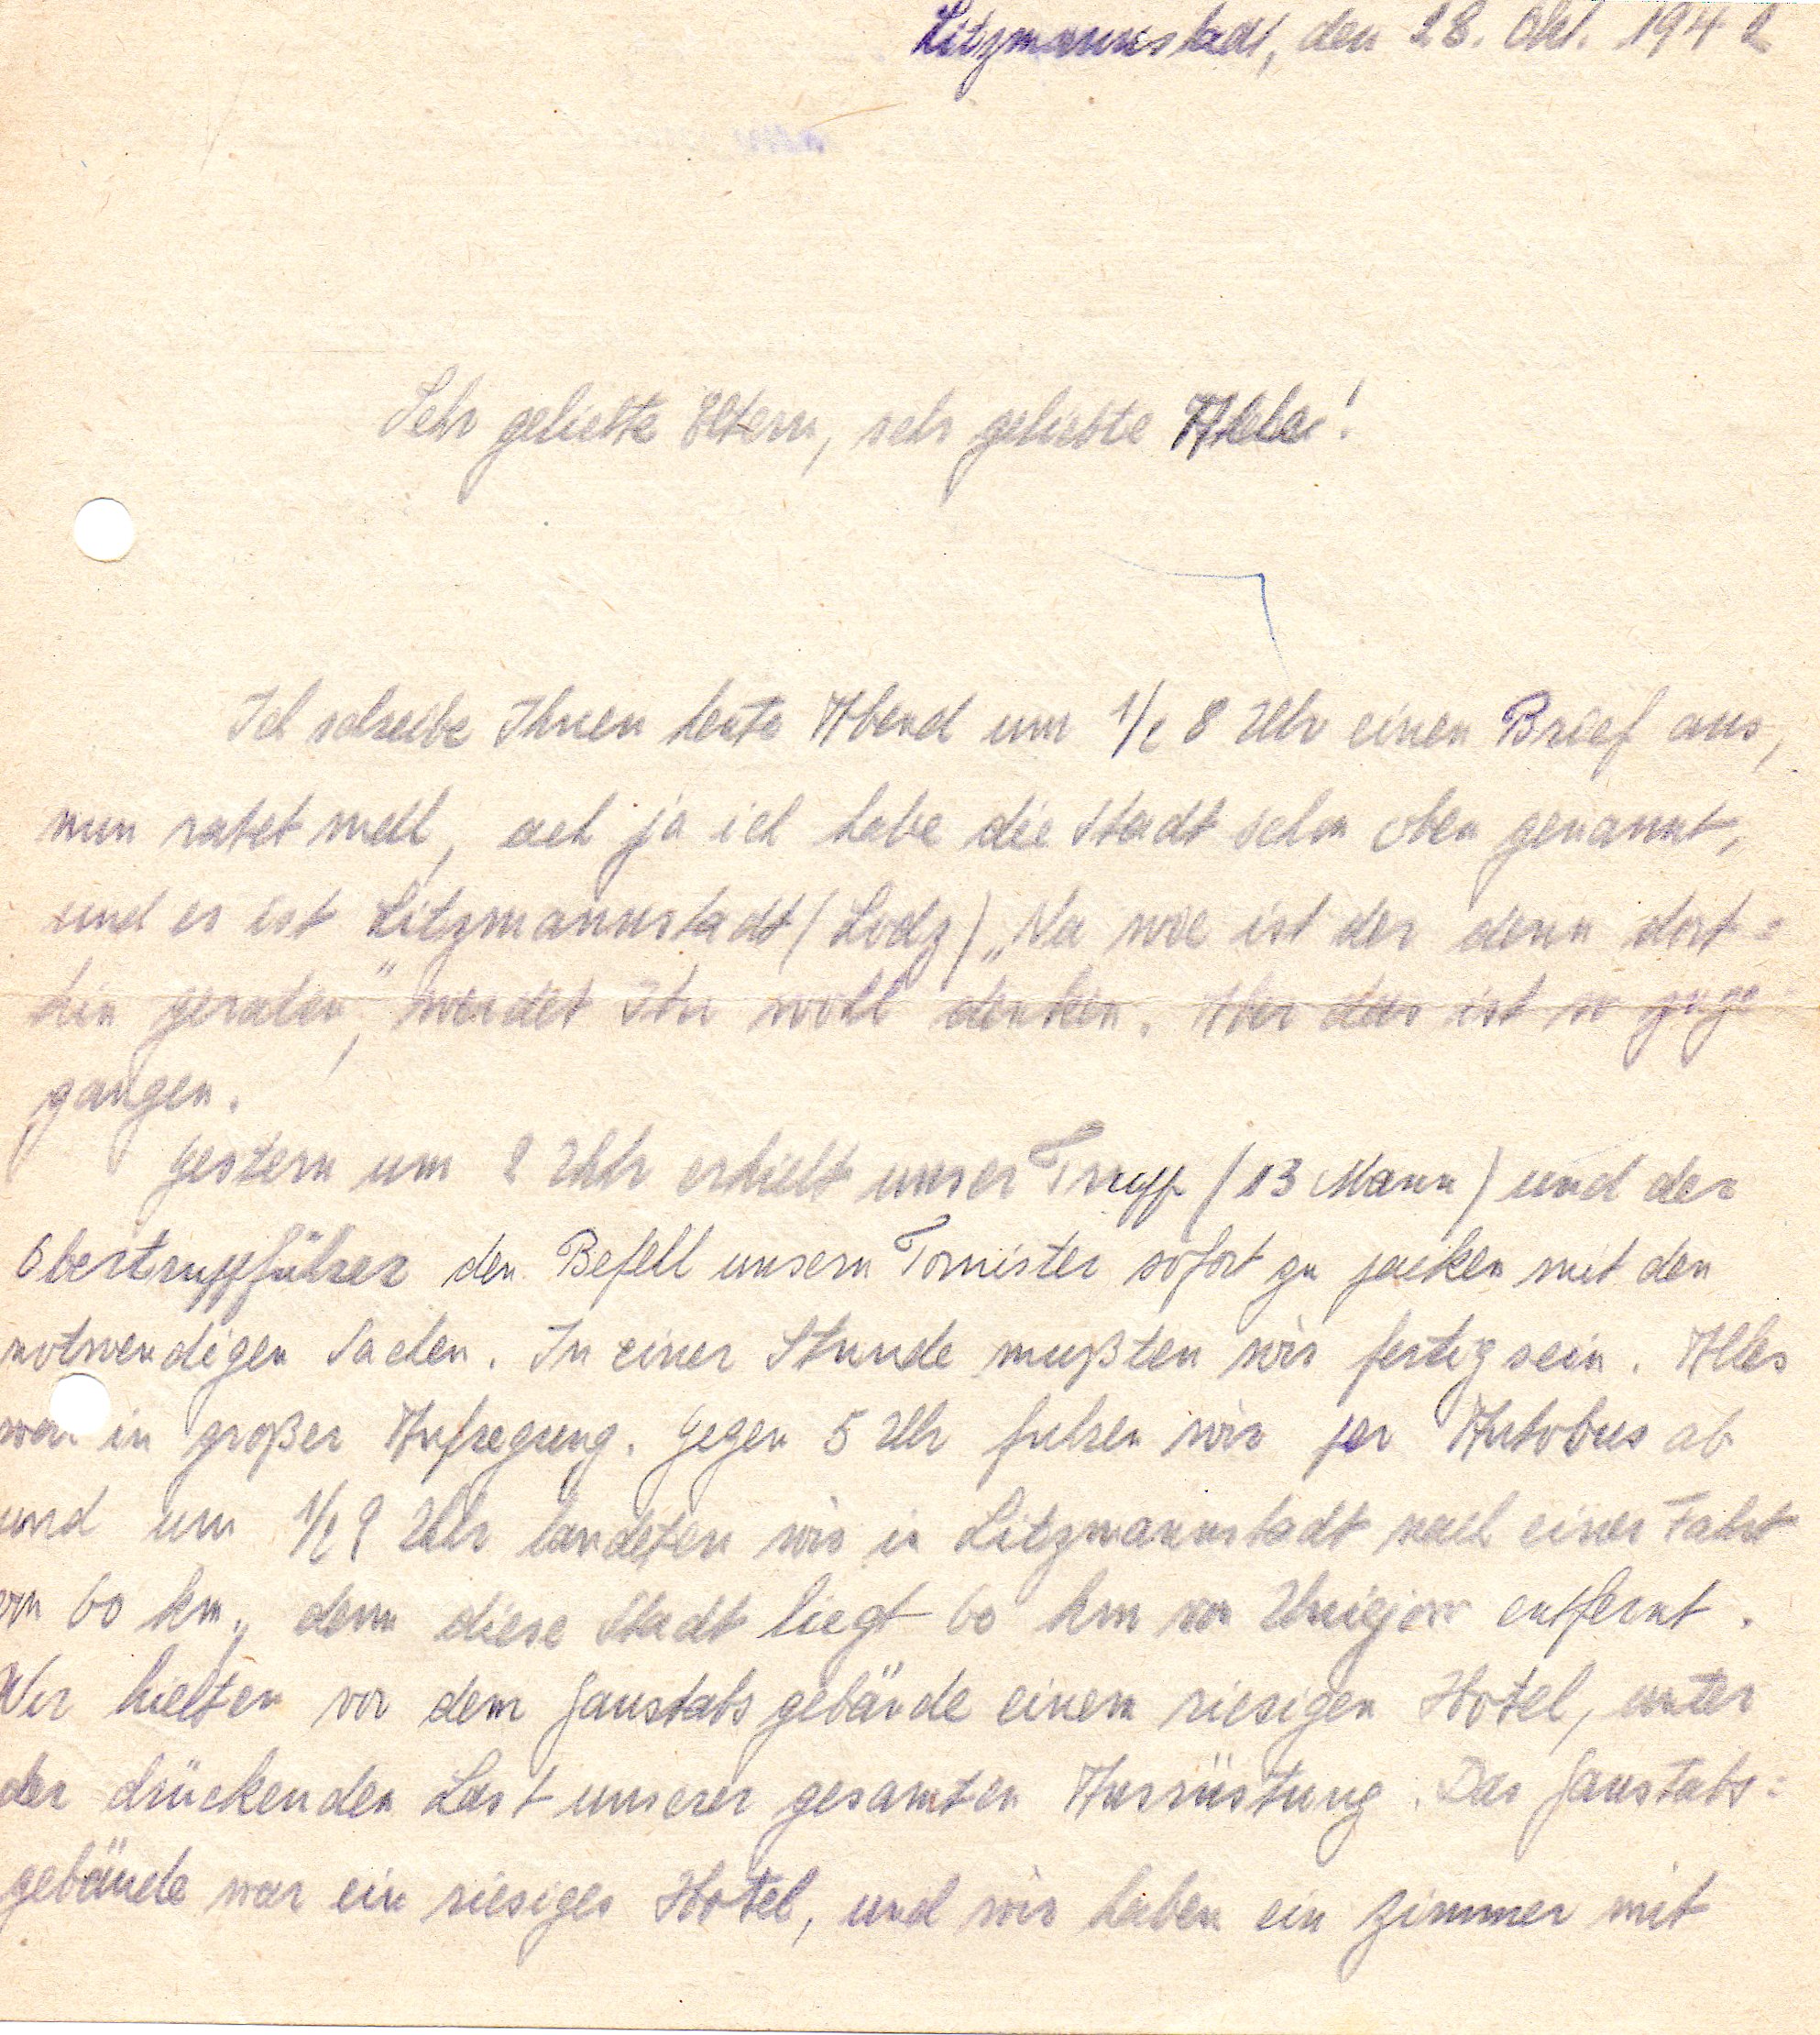 Litzmannstadt, den 28. Okt. 1942
Sehr geliebte Eltern, sehr geliebte
Ich schreibe Ihnen heute Abend um 1/2 8 Uhr einen Brief aus,
nun ratet mal, ach ja ich habe die Stadt schon oben genannt,
und es ist Litzmannstadt (Lodz) „Na wie ist der denn dort=
hin geraten," werdet Ihr wohl denken. Aber das ist so zuge
gangen.
Gestern um 2 Uhr erhielt unser Trupp (13 Mann) und der
Obertruppführer den Befehl unsern Tornister sofort zu packen mit den
notwendigen Sachen. In einer Stunde mußten wir fertig sein. Alles
war in großer Aufregung. Gegen 5 Uhr fuhren wir per Autobus ab
und um 1/2 9 Uhr landeten wir in Litzmannstadt nach einer Fahrt
von 60 km, denn diese Stadt liegt 60 km von Uniejow entfernt.
Wir hielten vor dem Gaustabsgebäude einem riesigen Hotel, unter
der drückenden Last unserer gesamten Ausrüstung. Das Gaustabs=
gebäude war ein riesiges Hotel, und wir haben ein Zimmer mit